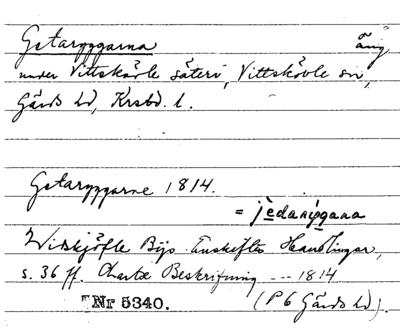 Getaryggarna äng
under Vittskövle säteri, Vittskövle sn,
Gärds hd, Krsbd. l.
Getaryggarne 1814.
= jedaarygana
Widskjöfle Bys Enskiftes Handlingar,
s. 36 ff. Charte Beskrifning --- 1814
Nr 5340. (P 6 Gärds hd).